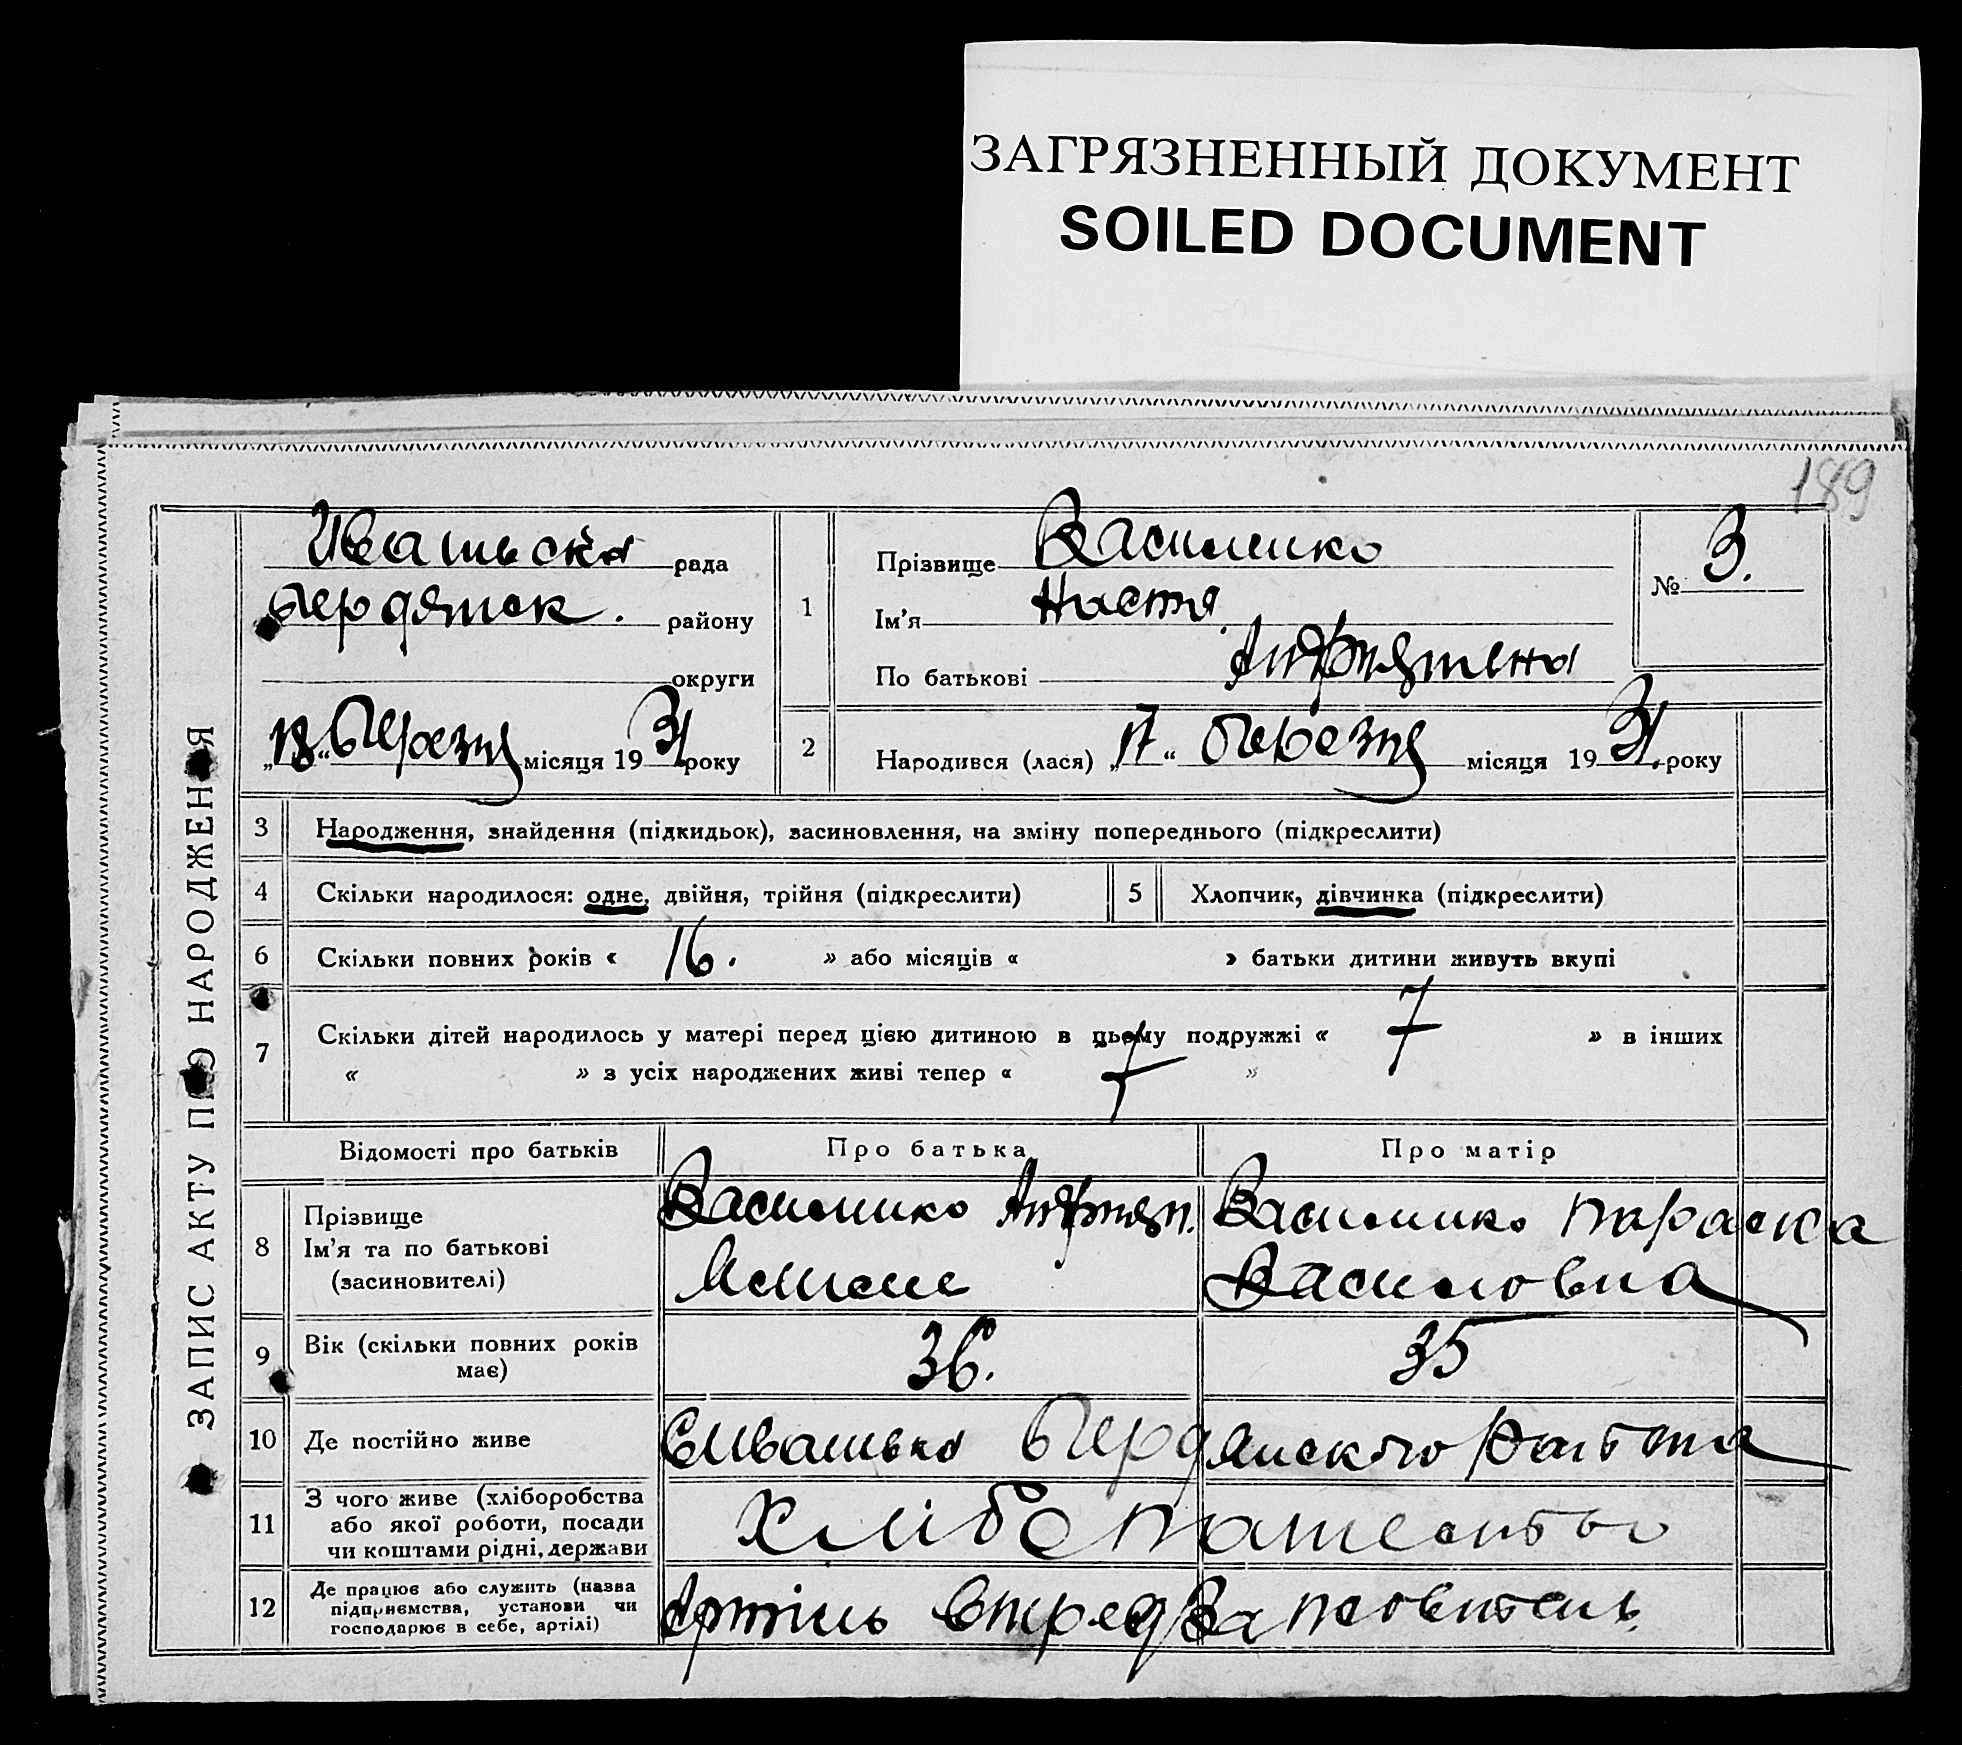 ЗАГРЯЗНЕННЫЙ ДОКУМЕНТ
SOILED DOCUMENT
189
ЗАПИС АКТУ ПРО НАРОДЖЕННЯ
рада
Бердянск. району
округи
„18“ Березня місяця 1931 року
1
Прізвище Василенко
Ім'я Настя
По батькові
№ 3.
2
Народився (лася) „17“ березня місяця 1931. року
3 Народження, знайдення (підкидьок), засиновлення, на зміну попереднього (підкреслити)
4 Скільки народилося: одне, двійня, трійня (підкреслити)
5 Хлопчик, дівчинка (підкреслити)
6 Скільки повних років « 16. » або місяців « » батьки дитини живуть вкупі
7 Скільки дітей народилось у матері перед цією дитиною в цьому подружжі « 7 » в інших
« » з усіх народжених живі тепер « 7 »
Відомості про батьків Про батька Про матір
8 Прізвище
Ім'я та по батькові
(засиновителі)
Василенко
Василенко Параска
Василовна
9 Вік (скільки повних років
має)
36. 35
10 Де постійно живе
Бердянского Района
11 З чого живе (хліборобства
або якої роботи, посади
чи коштами рідні, держави
Хлібопашество
12 Де працює або служить (назва
підприємства, установи чи
господарює в себе, артілі)
Артіль